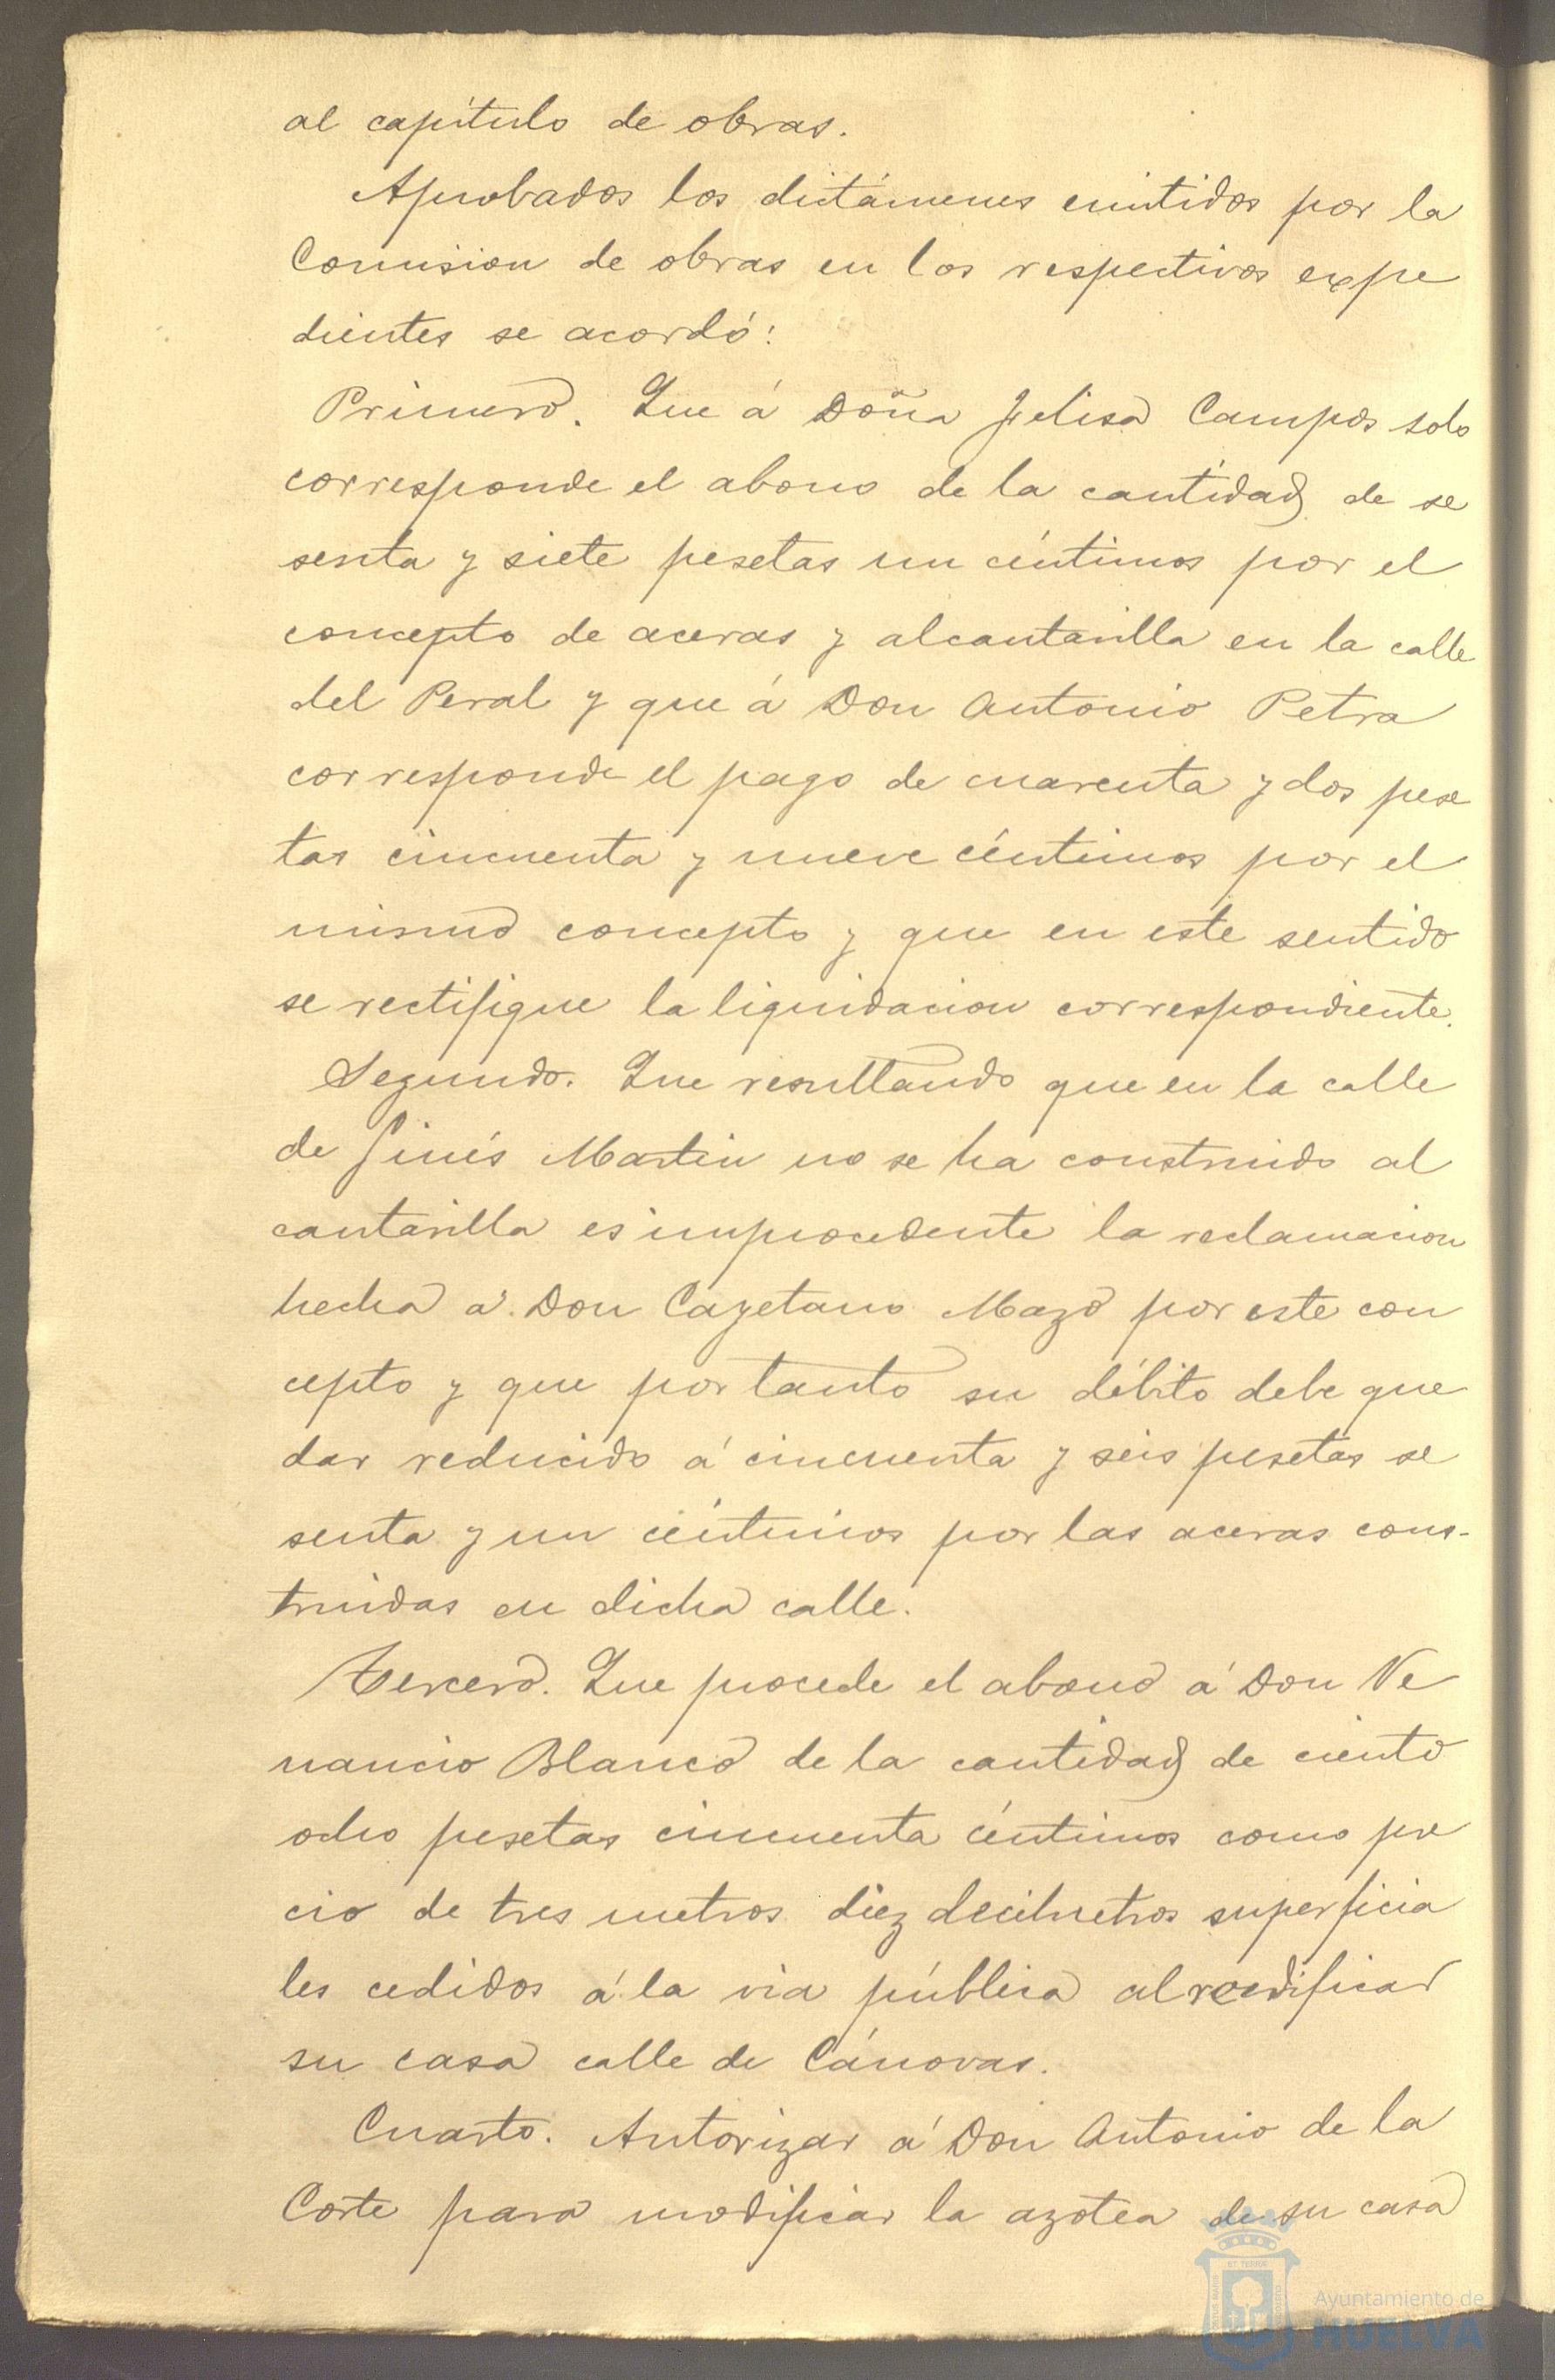 al capítulo de obras.
Aprobados los dictámenes emitidos por la
Comision de obras en los respectivos expe
dientes se acordó:
Primero. Que á Doña Felisa Campos solo
corresponde el abono de la cantidad de se
senta y siete pesetas un céntimos por el
concepto de aceras y alcantarilla en la calle
del Peral y que á Don Antonio Petra
corresponde el pago de cuarenta y dos pese
tas cincuenta y nueve céntimos por el
mismo concepto y que en este sentido
se rectifique la liquidacion correspondiente.
Segundo. Que resultando que en la calle
de Ginés Martin no se ha construido al
cantarilla es improcedente la reclamacion
hecha á Don Cayetano Mazo por este con
cepto y que por tanto su débito debe que
dar reducido á cincuenta y seis pesetas se
senta y un céntimos por las aceras cons-
truidas en dicha calle.
Tercero. Que procede el abono á Don Ve
nancio Blanco de la cantidad de ciento
ocho pesetas cincuenta céntimos como pre
cio de tres metros diez decímetros superficia
les cedidos á la via pública al reedificar
su casa calle de Cánovas.
Cuarto. Autorizar á Don Antonio de la
Corte para modificar la azotea de su casa
Ayuntamiento de
HUELVA